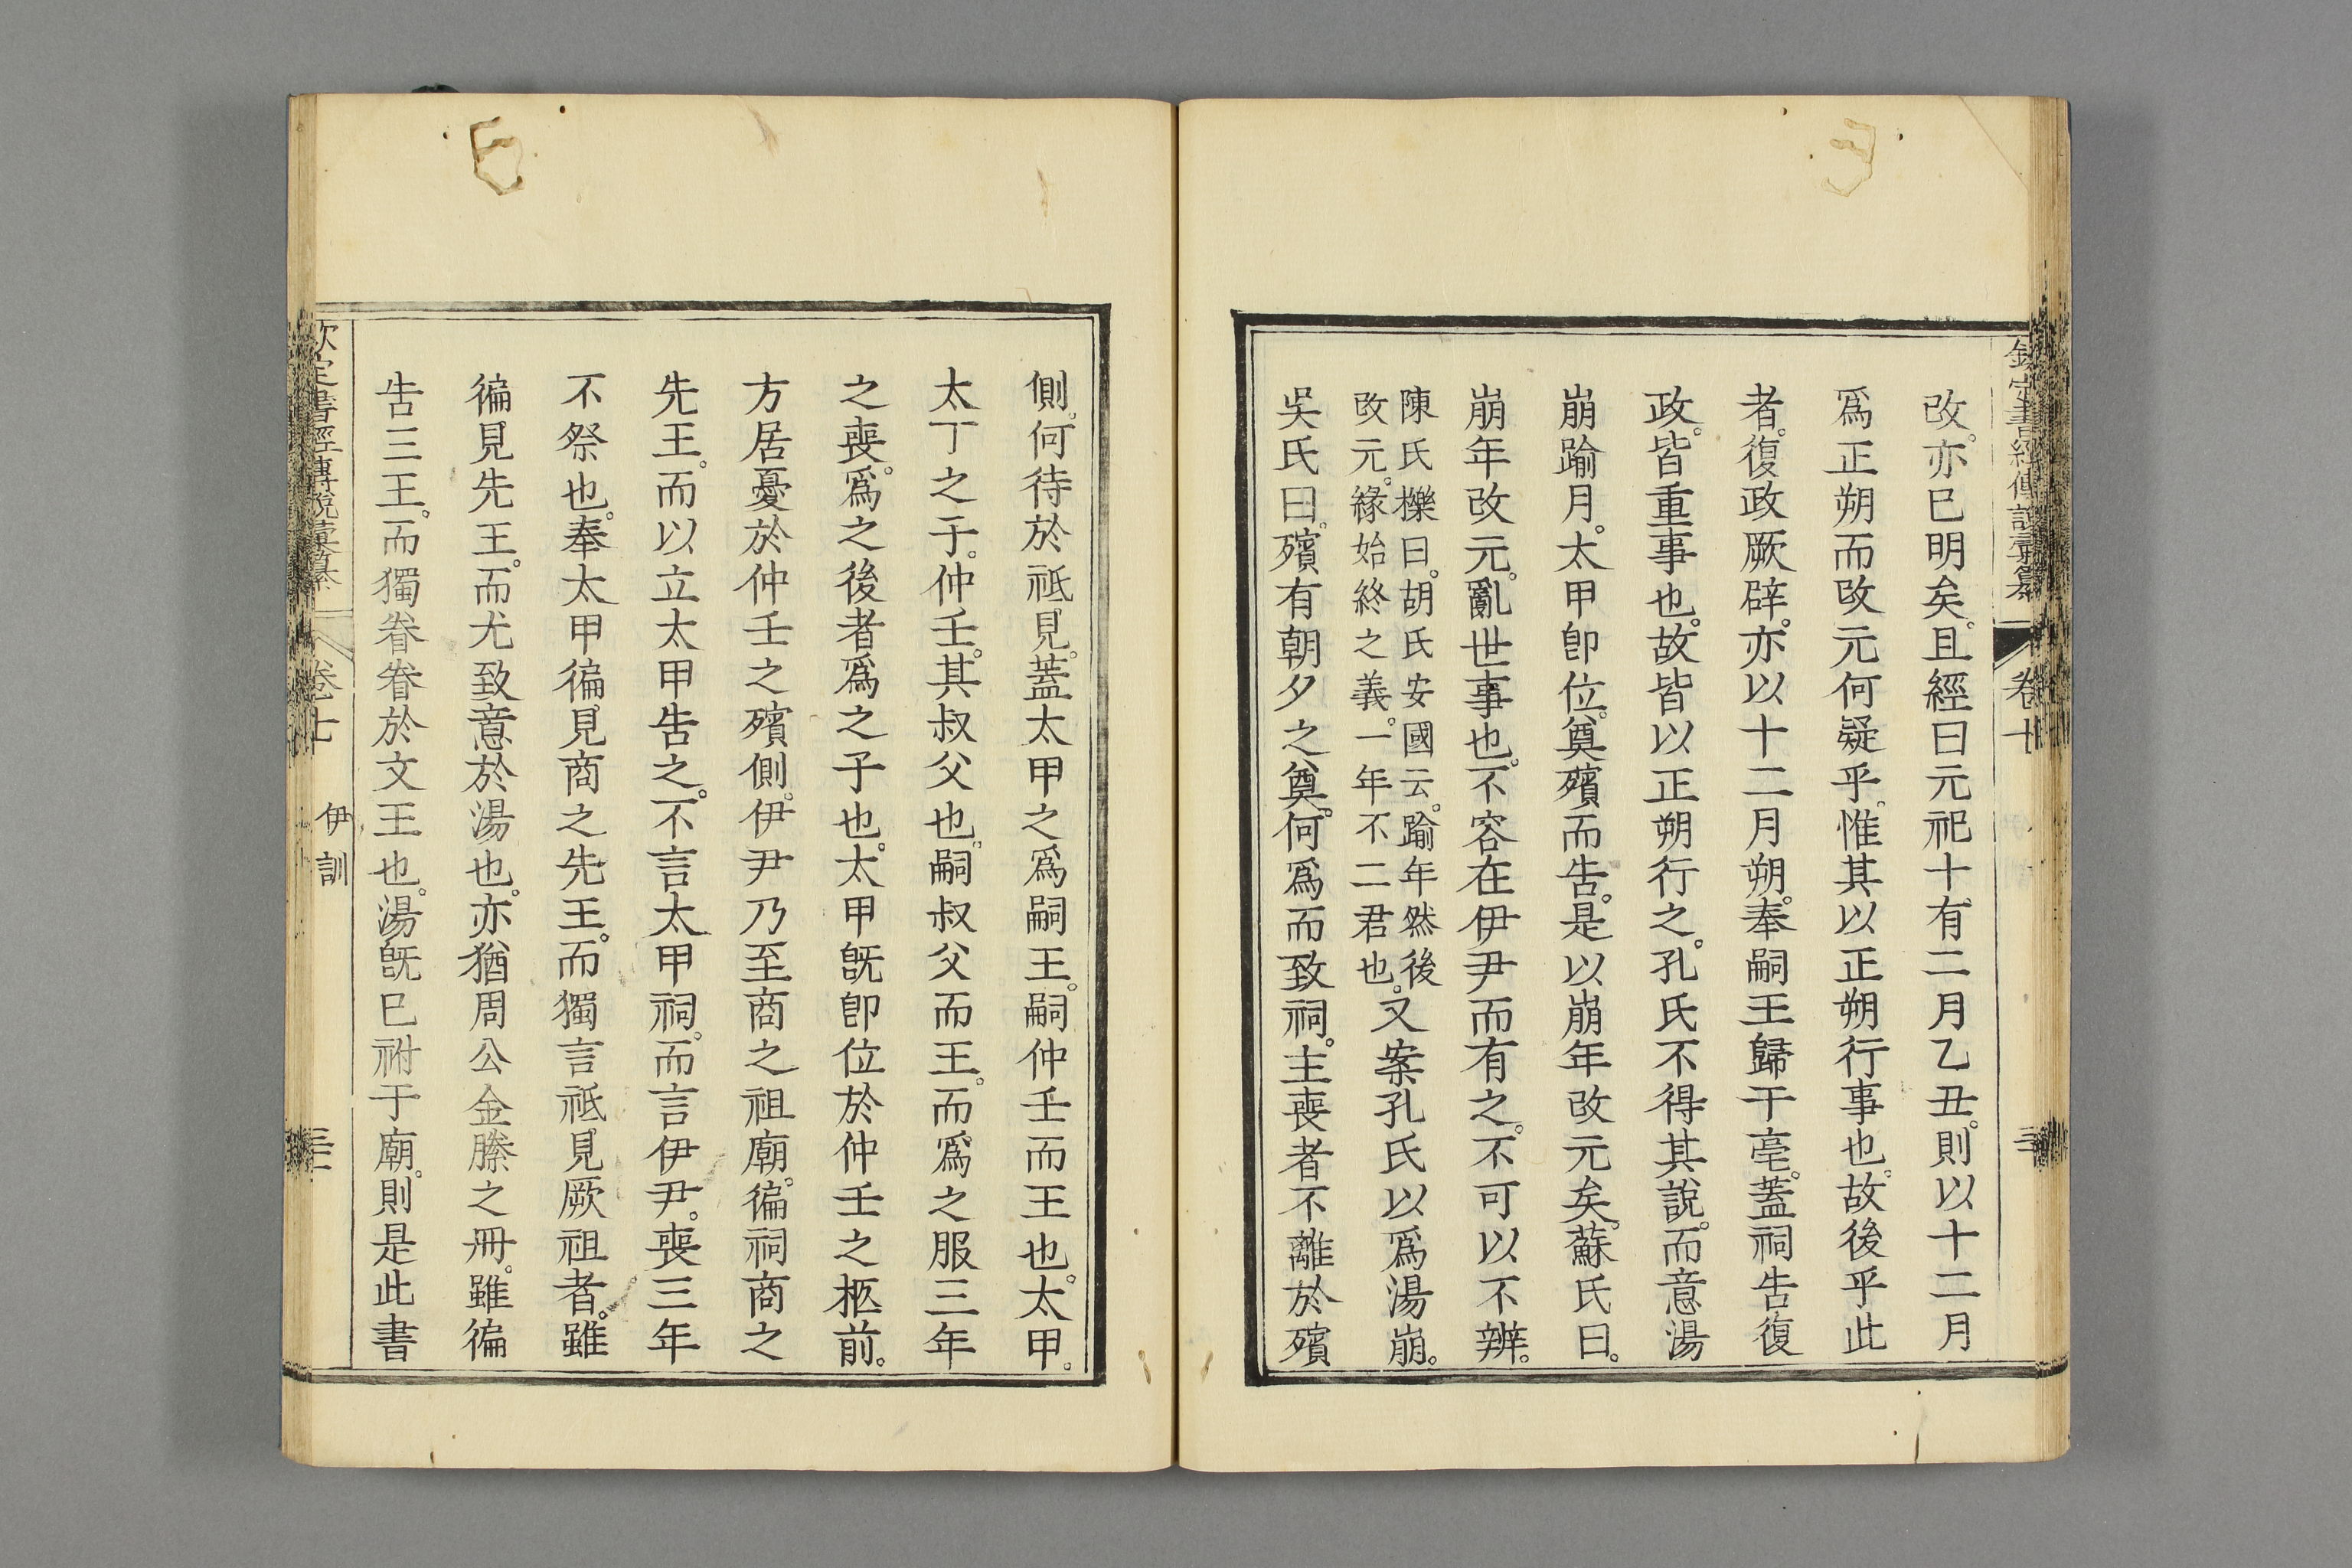 欽定書經傳說彙纂 卷十
改。亦已明矣。且經曰元祀十有二月乙丑。則以十二月
爲正朔而改元何疑乎。惟其以正朔行事也。故後乎此
者。復政厥辟。亦以十二月朔。奉嗣王歸于亳。蓋祠告復
政。皆重事也。故皆以正朔行之。孔氏不得其說。而意湯
崩踰月。太甲卽位。奠殯而告。是以崩年改元矣。蘇氏曰。
崩年改元。亂世事也。不容在伊尹而有之。不可以不辨。
陳氏櫟曰。胡氏安國云。踰年然後
改元。緣始終之義。一年不二君也。
又案孔氏以爲湯崩。
吳氏曰。殯有朝夕之奠。何爲而致祠。主喪者不離於殯
側。何待於祗見。蓋太甲之爲嗣王。嗣仲壬而王也。太甲。
太丁之子。仲壬。其叔父也。嗣叔父而王。而爲之服三年
之喪。爲之後者爲之子也。太甲旣卽位於仲壬之柩前。
方居憂於仲壬之殯側。伊尹乃至商之祖廟。徧祠商之
先王。而以立太甲告之。不言太甲祠。而言伊尹。喪三年
不祭也。奉太甲徧見商之先王。而獨言祗見厥祖者。雖
徧見先王。而尤致意於湯也。亦猶周公金縢之冊。雖徧
告三王。而獨眷眷於文王也。湯旣已祔于廟。則是此書
欽定書經傳說彙纂 卷十 伊訓